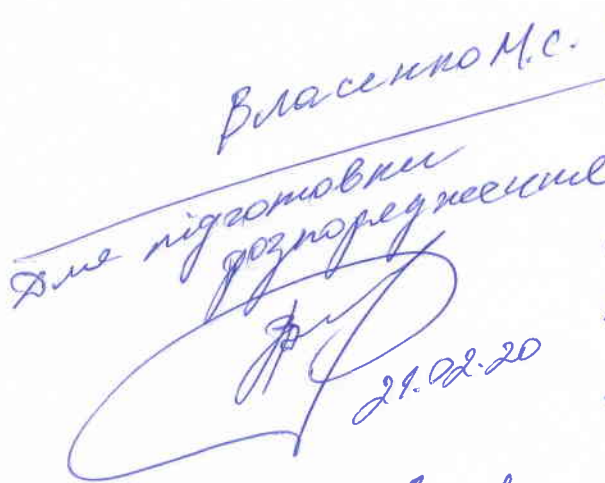 Власенко М.С.
Для підготовки
розпорядження
21.02.20